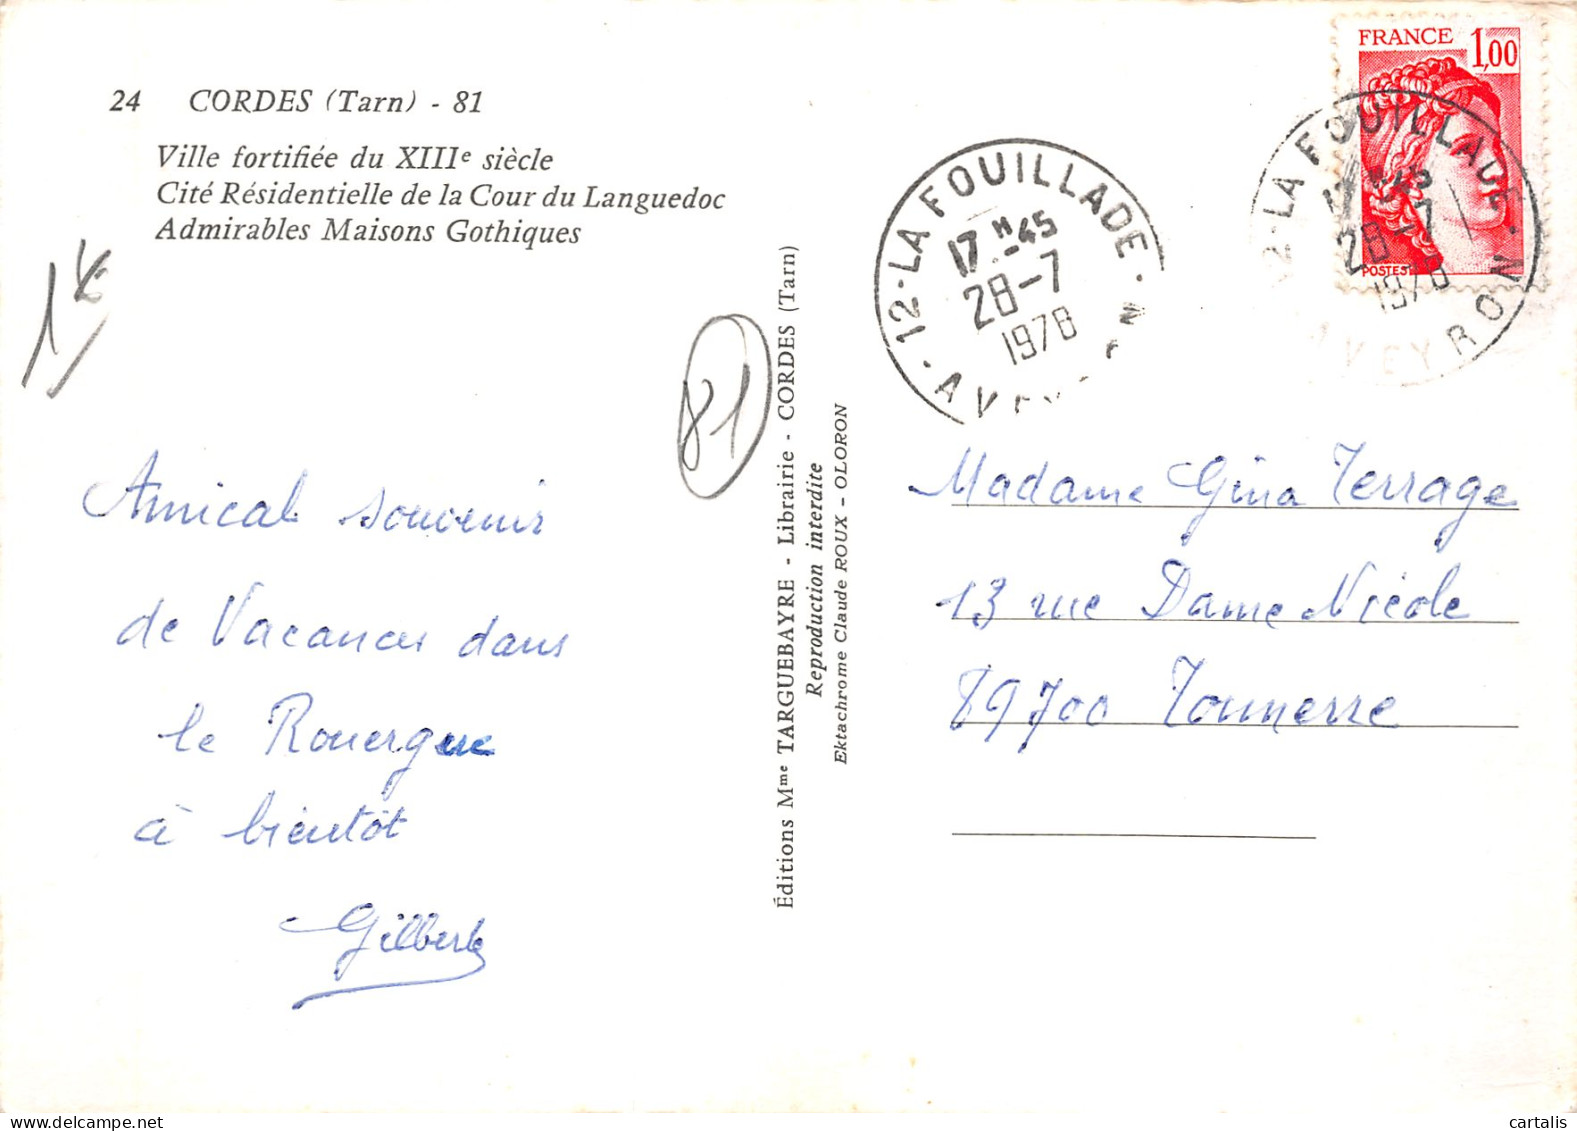 24 CORDES (Tarn) - 81
Ville fortifiée du XIIIe siècle
Cité Résidentielle de la Cour du Languedoc
Admirables Maisons Gothiques
1€
81
Amical souvenir
de Vacances dans
le Rouergue
à bientôt
Gilberte
Éditions Mme TARGUEBAYRE - Librairie - CORDES (Tarn)
Reproduction interdite
Ektachrome Claude ROUX - OLORON
12-LA FOUILLADE
17H-45
28-7
1978
FRANCE 1,00
POSTES
12-LA FOUILLADE
17H-45
28-7
1978
AVEYRON
Madame Gina Terrage
13 rue Dame Nicole
89700 Tonnerre
cartalis